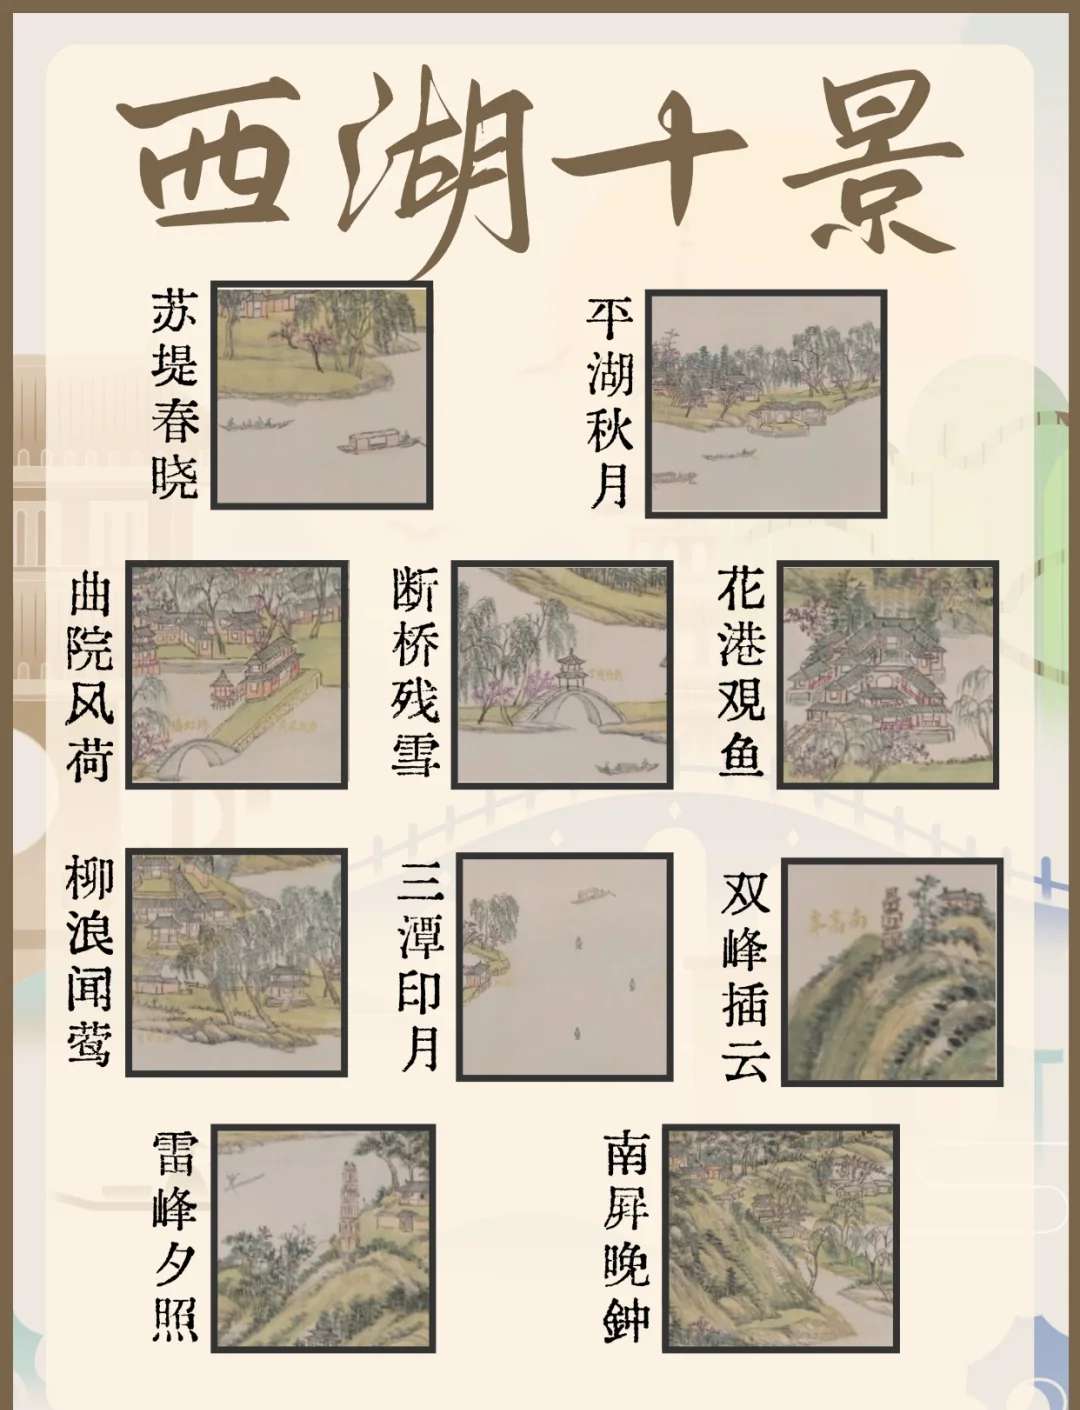 西湖十景
苏堤春晓
平湖秋月
曲院风荷
断桥残雪
花港观鱼
柳浪闻莺
三潭印月
双峰插云
南高峯
雷峰夕照
南屏晚鈡